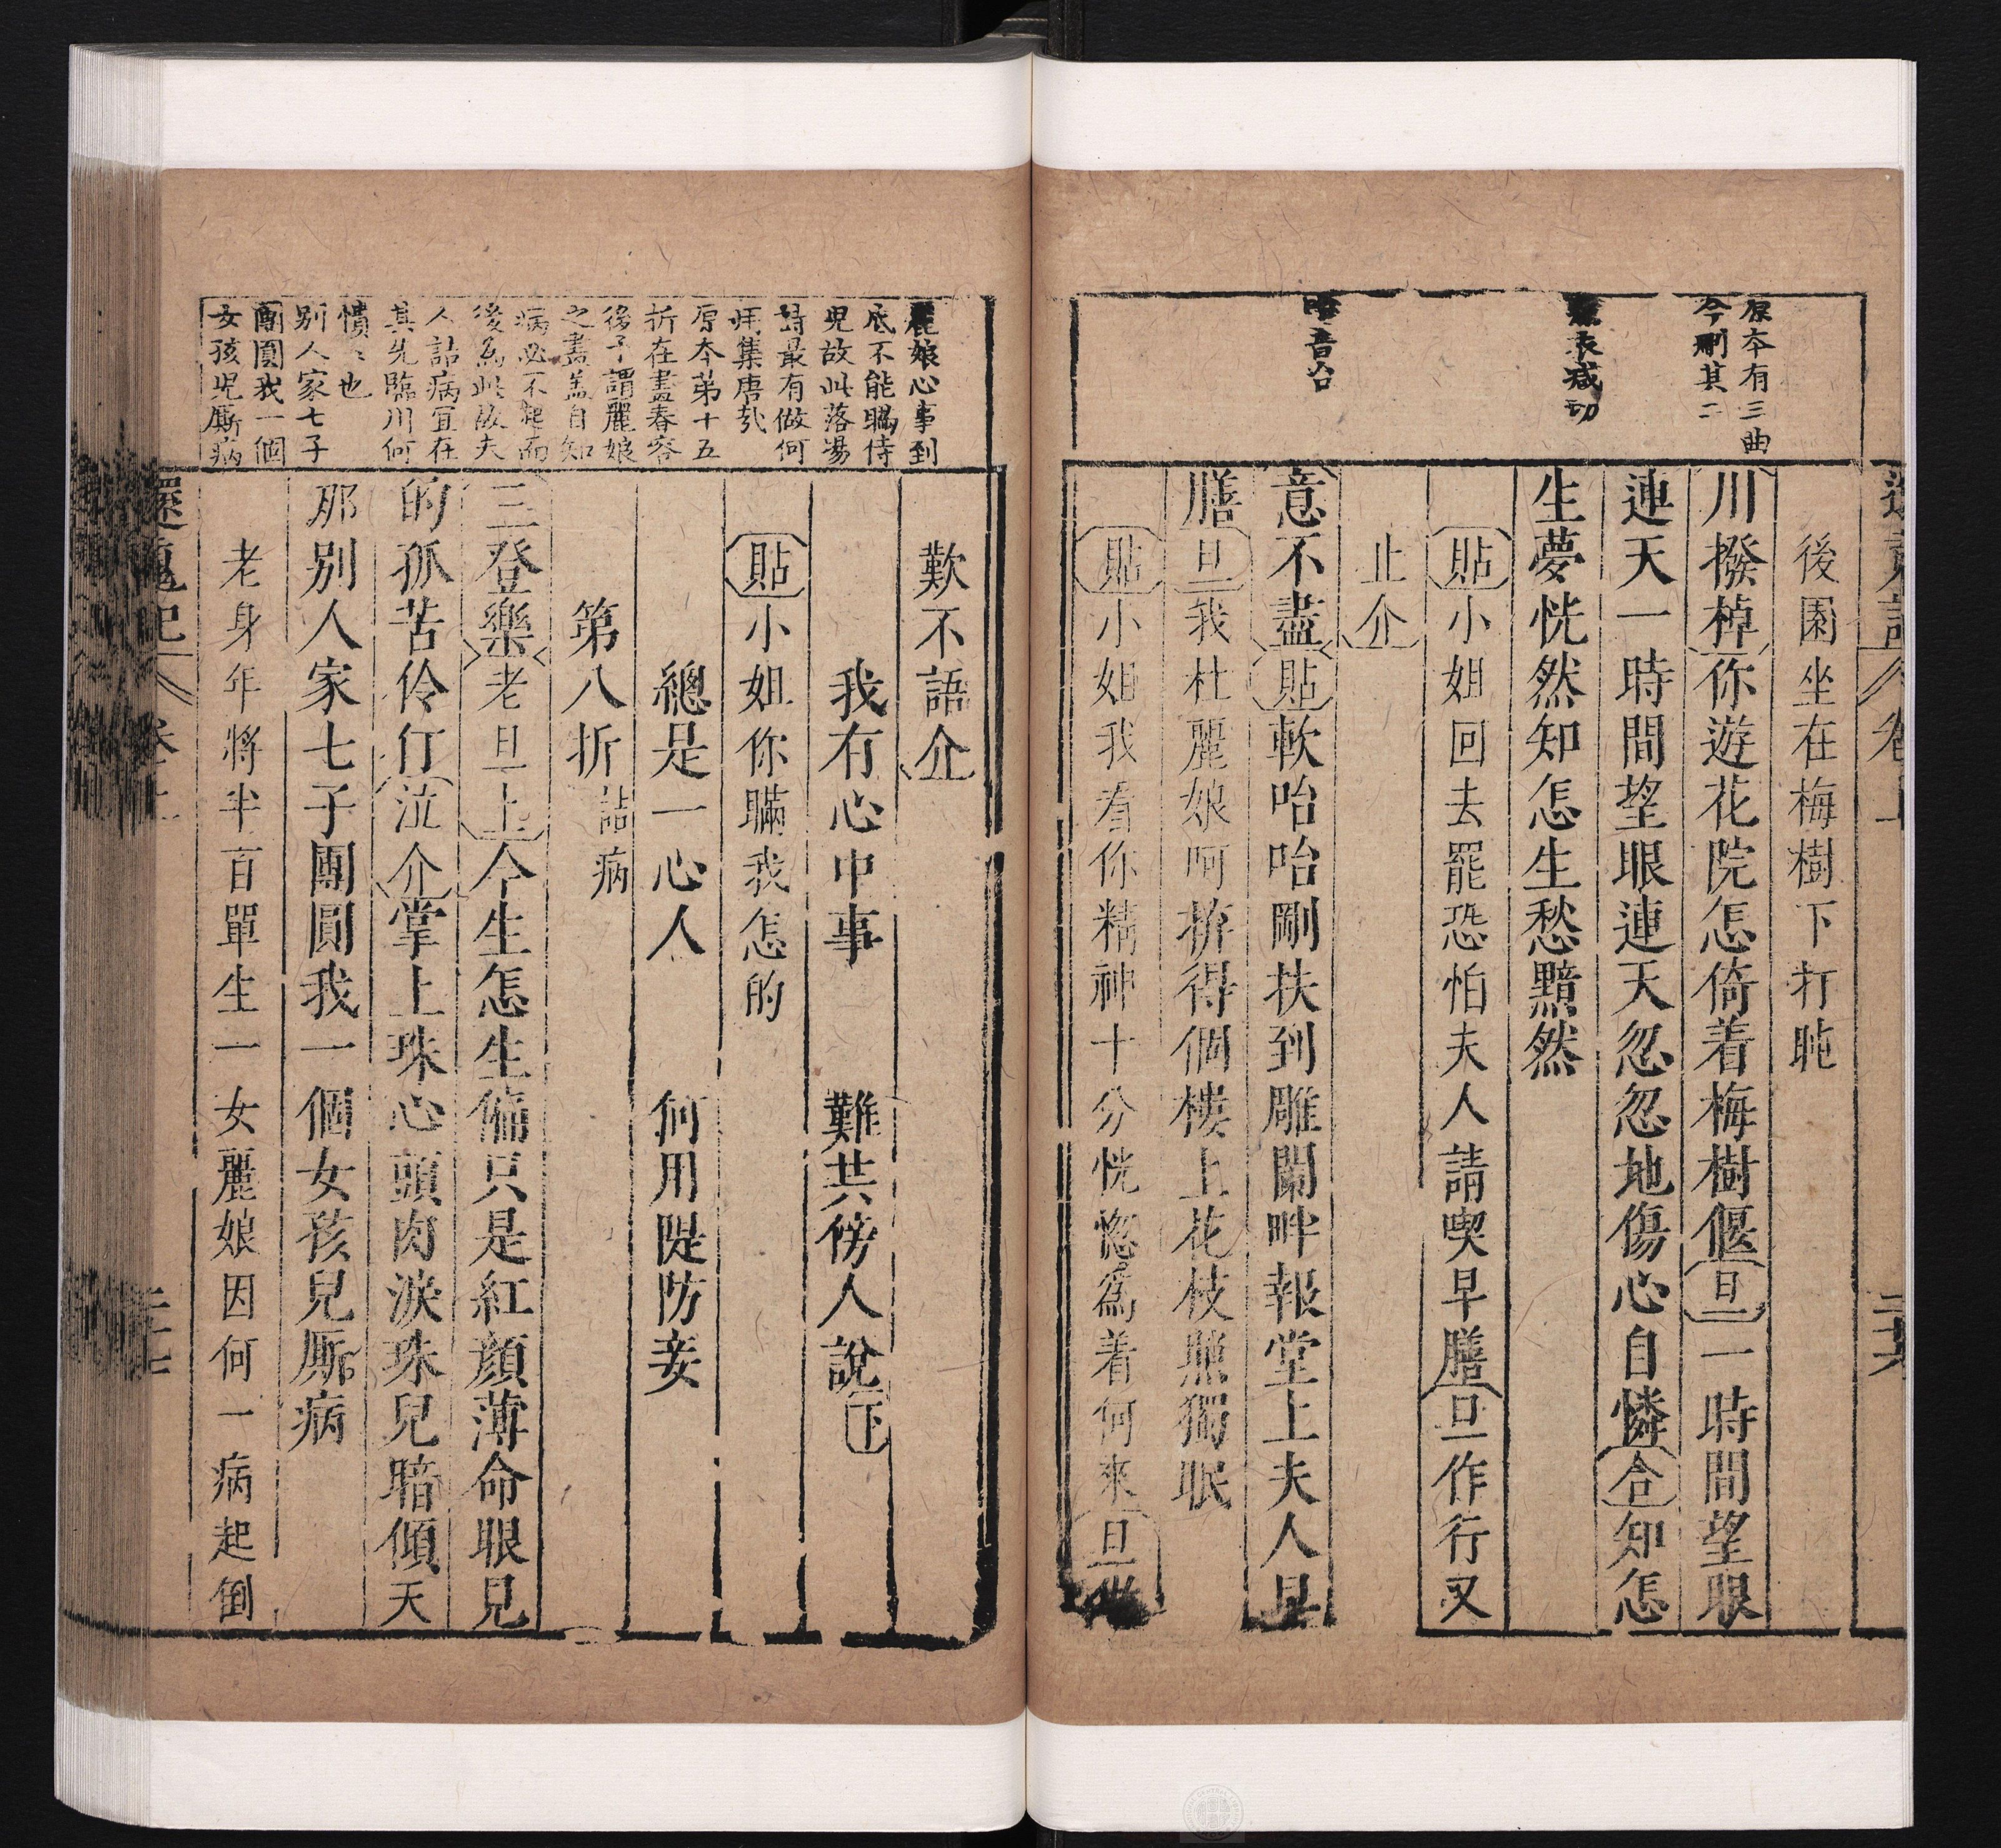 原本有三曲
今刪其二
黶衣減切
哈音台
還魂記
卷上
二十六
後園坐在梅樹下打盹
川撥棹你遊花院怎倚着梅樹偃旦一時間望眼
連天一時間望眼連天忽忽地傷心自憐合知怎
生夢恍然知怎生愁黯然
貼小姐回去罷恐怕夫人請喫早膳旦作行又
止介
意不盡貼軟咍咍剛扶到雕闌畔報堂上夫人
膳旦我杜麗娘呵捱得個樓上花枝照獨眠
貼小姐我看你精神十分恍惚為着何來旦
麗娘心事到
底不能瞞侍
兒故此落場
詩最有做何
用集唐㦲
原本第十五
折在畫春容
後予謂麗娘
之畫盖自知
病必不起而
後爲此若夫
人詰病宜在
其先臨川何
憒憒也
別人家七子
團圓我一個
女孩兒廝病
歎不語介
我有心中事　難共傍人說下
貼小姐你瞞我怎的
總是一心人　何用隄防妾
第八折 詰病
三登樂老旦上今生怎生偏只是紅顏薄命眼見
的孤苦伶仃泣介掌上珠心頭肉淚珠兒暗傾天
那別人家七子團圓我一個女孩兒廝病
老身年將半百單生一女麗娘因何一病起倒
還魂記
卷上
二十七